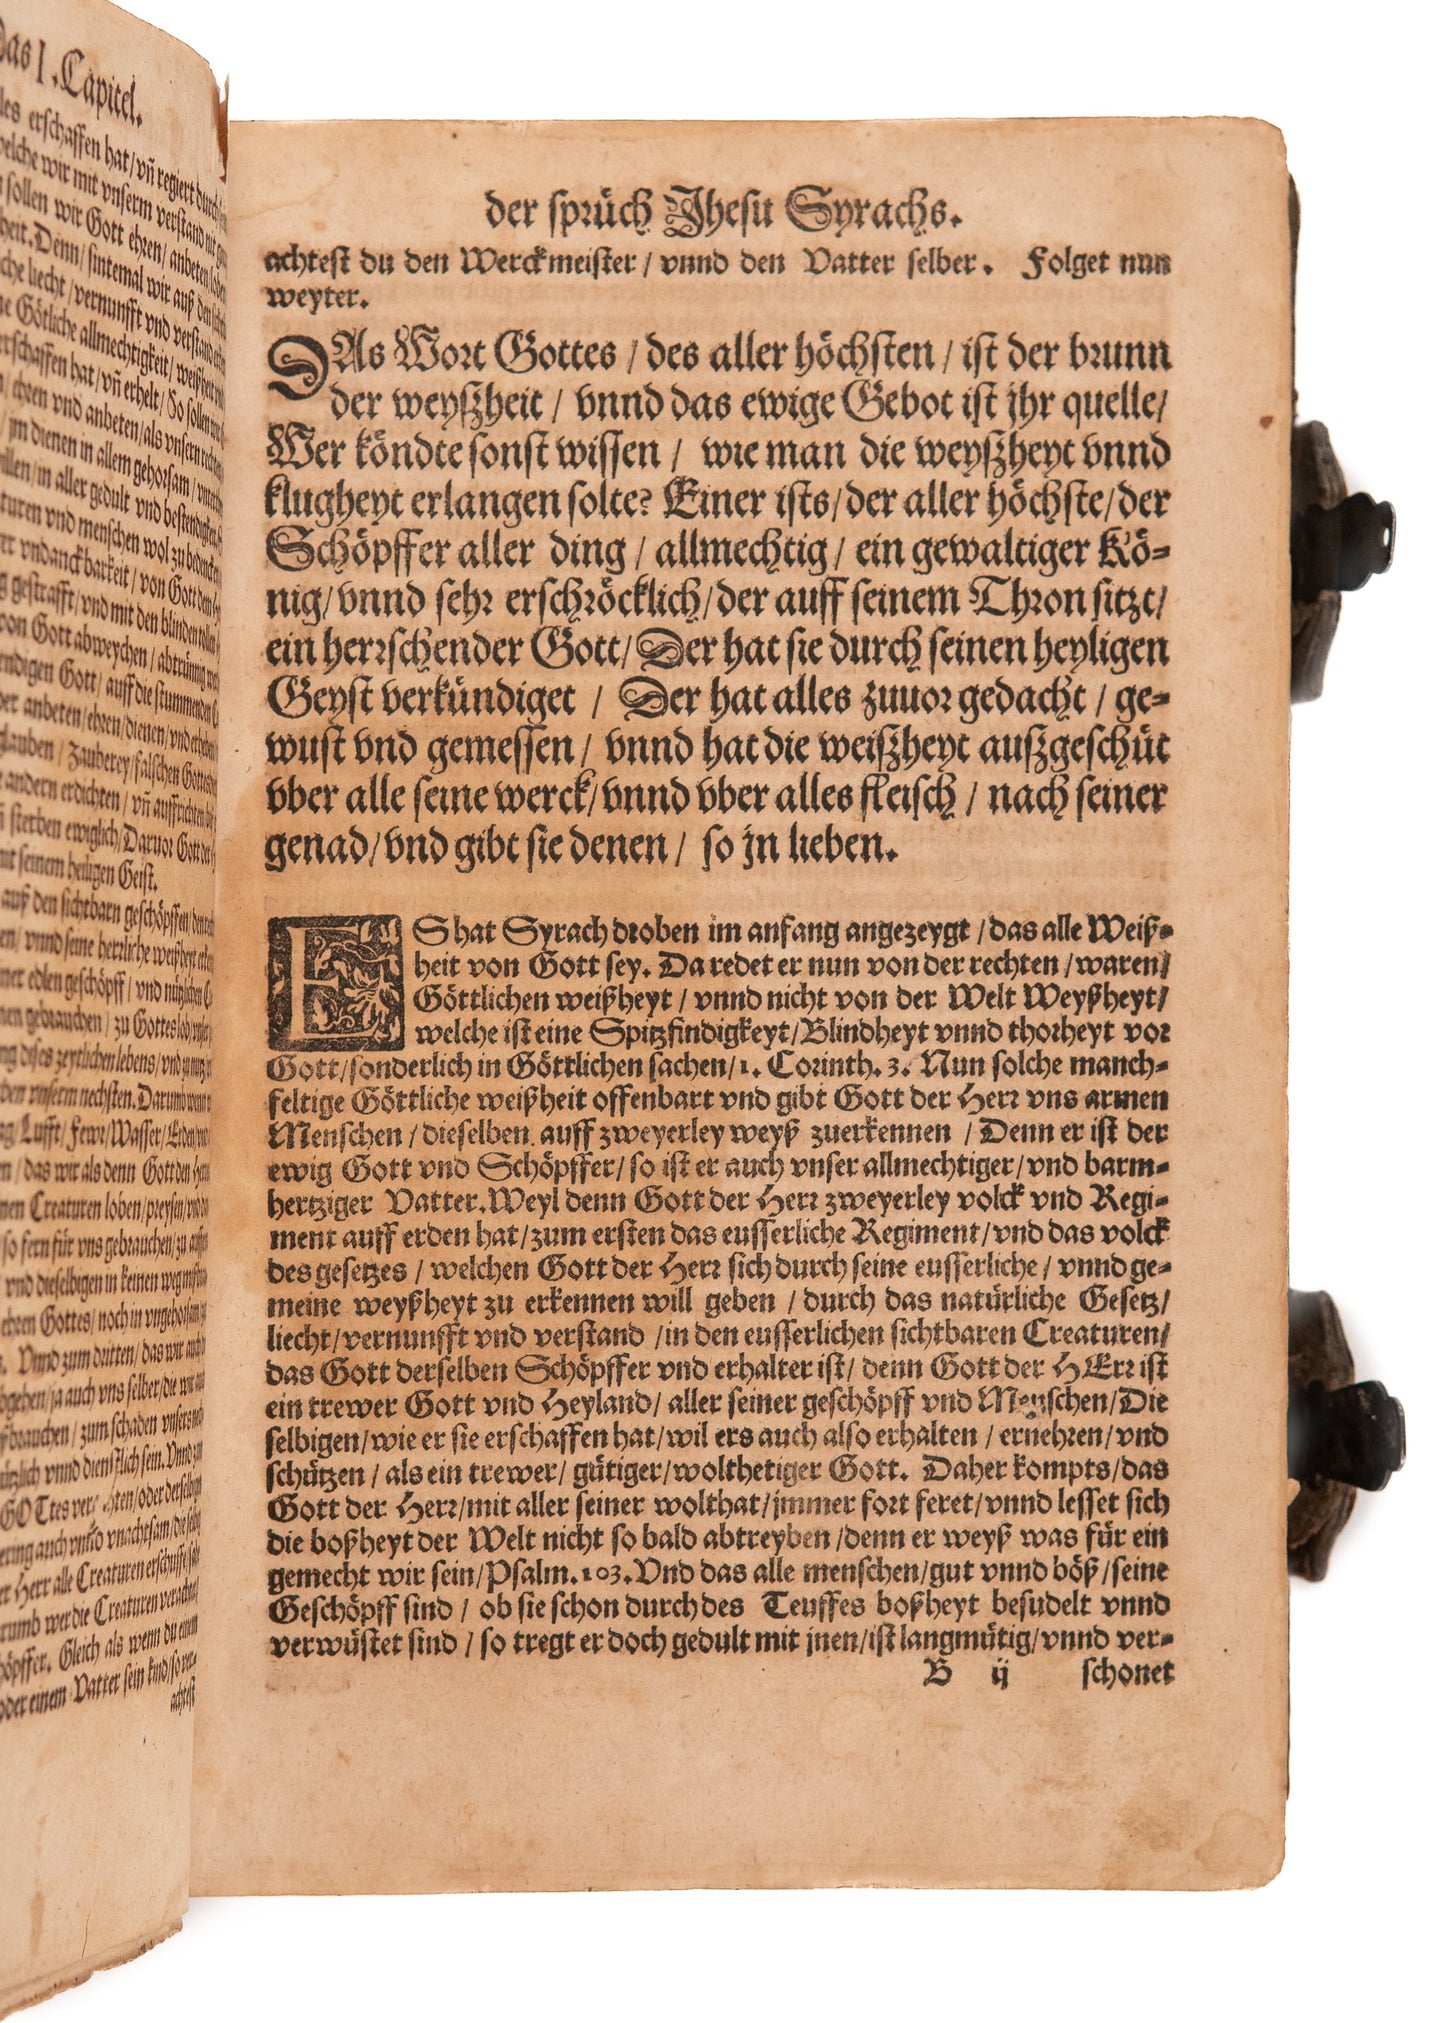 Das I. Capitel.
erschaffen hat/vñ regiert durch
welche wir mit vnserm verstand mit
sollen wir Gott ehren/anbeten/loben
Denn/sintemal wir auß den
liecht/vernunfft vnd verstand
Götliche allmechtigkeit/weißheit
erschaffen hat/vñ erhelt/So sollen wir
ehren vnd anbeten/als vnsern rechten
jm dienen in allem gehorsam/
in aller gedult vnd bestendigkeit
vnd menschen wol zu bedencken
vndanckbarkeit/von Gott dem
gestrafft/vnd mit den blinden tollen
von Gott abweychen/abtrünnig
Gott/auff die stummenden
anbeten/ehren/dienen/vnd erheben
glauben/Zauberey/falschen Gottes
andern erdichten/vñ auffrichten
sterben ewiglich/Daruor Gott
mit seinem heiligen Geist.
auß den sichtbarn geschöpffen/
vnnd seine herrliche weißheyt
edlen geschöpff/vnd nützlichen
gebrauchen/zu Gottes lob/
dises zeytlichen lebens/vnd
vnserm nechsten. Darumb wenn
Lufft/Fewr/Wasser/Erden/
das wir als denn Gott den
Creaturen loben/preysen/vnd
so fern für vns gebrauchen/zu
vnd dieselbigen in keinen weg
ehren Gottes/noch in vngehorsam
Vnnd zum dritten/das wir auch
ja auch vns selber/die wir
brauchen/zum schaden vnsers
vnnd dienstlich sein. Vnnd
GOttes oder derselbigen
auch vnnd vnachtsam/die
Herr alle Creaturen erschuff/
wer die Creaturen verachtet
Gleich als wenn du einem
oder einem Vatter sein kind/so ver-
achtest
der sprüch Jhesu Syrachs.
achtest du den Werckmeister/vnnd den Vatter selber. Folget nun
weyter.
DAs Wort Gottes/des aller höchsten/ist der brunn
der weyßheit/vnnd das ewige Gebot ist jhr quelle/
Wer köndte sonst wissen/wie man die weyßheyt vnnd
klugheyt erlangen solte? Einer ists/der aller höchste/der
Schöpffer aller ding/allmechtig/ein gewaltiger Kö-
nig/vnnd sehr erschröcklich/der auff seinem Thron sitzt/
ein herrschender Gott/Der hat sie durch seinen heyligen
Geyst verkündiget/Der hat alles zuuor gedacht/ge-
wust vnd gemessen/vnnd hat die weißheyt außgeschüt
vber alle seine werck/vnnd vber alles fleisch/nach seiner
genad/vnd gibt sie denen/so jn lieben.
ES hat Syrach droben im anfang angezeygt/das alle Weiß-
heit von Gott sey. Da redet er nun von der rechten/waren/
Göttlichen weißheyt/vnnd nicht von der Welt Weyßheyt/
welche ist eine Spitzfindigkeyt/Blindheyt vnnd thorheyt vor
Gott/sonderlich in Göttlichen sachen/1. Corinth. 3. Nun solche manch-
feltige Göttliche weißheit offenbart vnd gibt Gott der Herr vns armen
Menschen/dieselben auff zweyerley weyß zuerkennen/Denn er ist der
ewig Gott vnd Schöpffer/so ist er auch vnser allmechtiger/vnd barm-
hertziger Vatter. Weyl denn Gott der Herr zweyerley volck vnd Regi-
ment auff erden hat/zum ersten das eusserliche Regiment/vnd das volck
des gesetzes/welchen Gott der Herr sich durch seine eusserliche/vnnd ge-
meine weyßheyt zu erkennen will geben/durch das natürliche Gesetz/
liecht/vernunfft vnd verstand/in den eusserlichen sichtbaren Creaturen/
das Gott derselben Schöpffer vnd erhalter ist/denn Gott der HErr ist
ein trewer Gott vnd Heyland/aller seiner geschöpff vnd Menschen/Die
selbigen/wie er sie erschaffen hat/wil ers auch also erhalten/ernehren/vnd
schützen/als ein trewer/gütiger/wolthetiger Gott. Daher kompts/das
Gott der Herr/mit aller seiner wolthat/jmmer fort feret/vnnd lesset sich
die boßheyt der Welt nicht so bald abtreyben/denn er weyß was für ein
gemecht wir sein/Psalm. 103. Vnd das alle menschen/gut vnnd böß/seine
Geschöpff sind/ob sie schon durch des Teuffes boßheyt besudelt vnnd
verwüstet sind/so tregt er doch gedult mit jnen/ist langmütig/vnnd ver-
B ij schonet